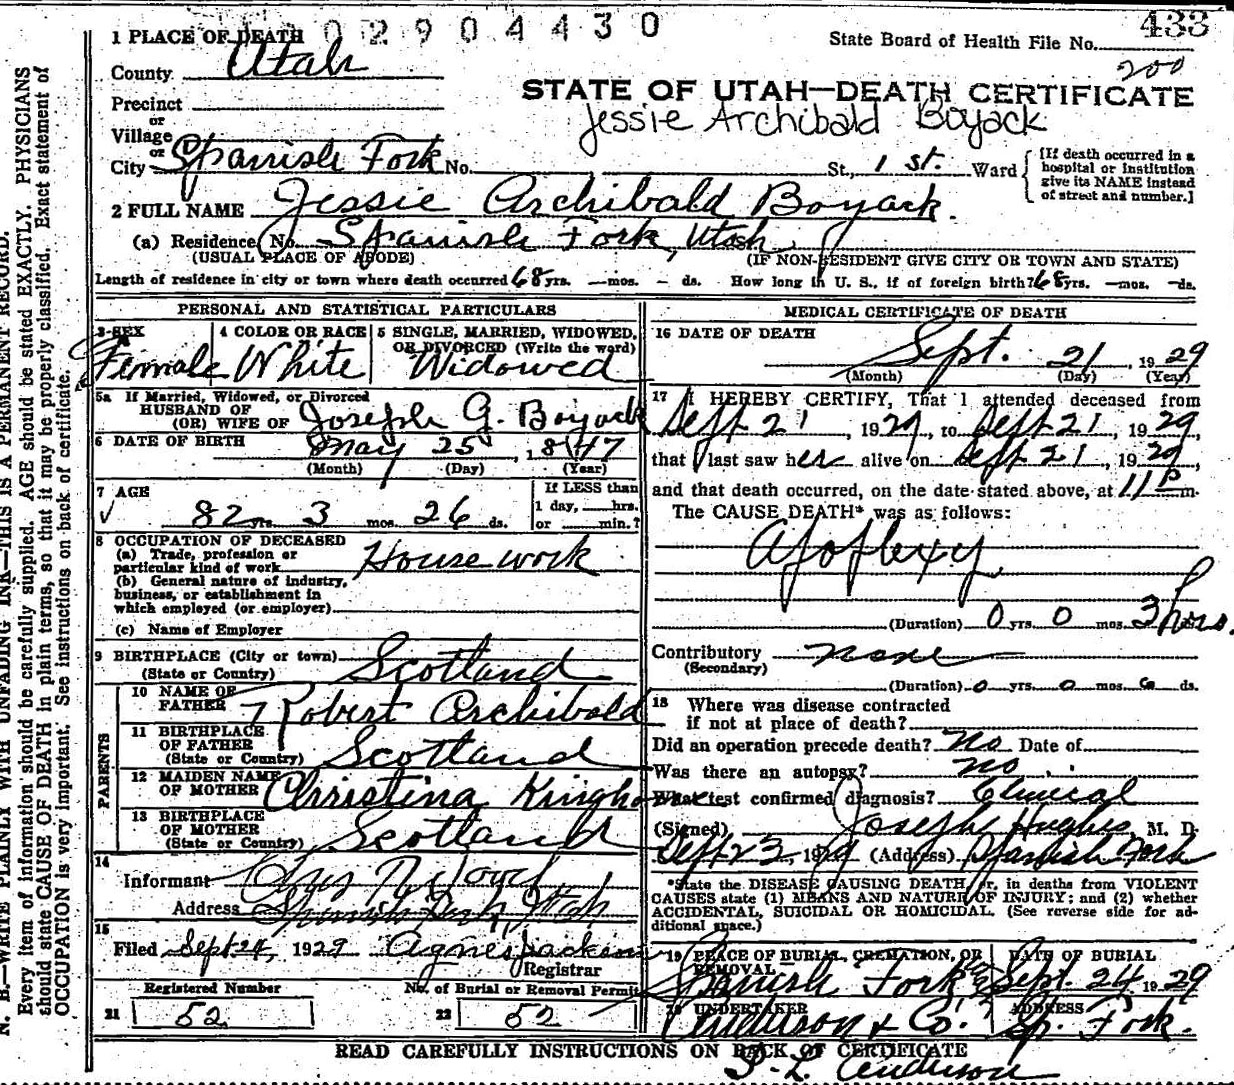 02904430
433
1 PLACE OF DEATH
State Board of Health File No.
200
County Utah
STATE OF UTAH—DEATH CERTIFICATE
Precinct
or
Jessie Archibald Boyack
Village
or
City Spanish Fork No. St., 1 st. Ward
[If death occurred in a
hospital or institution
give its NAME instead
of street and number.]
2 FULL NAME Jessie Archibald Boyack.
(a) Residence, No. Spanish Fork, Utah
(USUAL PLACE OF ABODE) (IF NON-RESIDENT GIVE CITY OR TOWN AND STATE)
Length of residence in city or town where death occurred 68 yrs. — mos. — ds. How long in U. S., if of foreign birth? 68 yrs. — mos. — ds.
PERSONAL AND STATISTICAL PARTICULARS
3 SEX
Female
4 COLOR OR RACE
White
5 SINGLE, MARRIED, WIDOWED,
OR DIVORCED (Write the word)
Widowed
5a If Married, Widowed, or Divorced
HUSBAND OF
(OR) WIFE OF Joseph G. Boyack
6 DATE OF BIRTH May 25, 1847
(Month) (Day) (Year)
7 AGE
82 yrs. 3 mos. 26 ds.
If LESS than
1 day, hrs.
or min.?
8 OCCUPATION OF DECEASED
(a) Trade, profession or
particular kind of work House work
(b) General nature of industry,
business, or establishment in
which employed (or employer)
(c) Name of Employer
9 BIRTHPLACE (City or town)
(State or Country) Scotland
PARENTS
10 NAME OF
FATHER Robert Archibald
11 BIRTHPLACE
OF FATHER
(State or Country) Scotland
12 MAIDEN NAME
OF MOTHER Christina Kinghorn
13 BIRTHPLACE
OF MOTHER
(State or Country) Scotland
14
Informant
Address Spanish Fork, Utah
15
Filed Sept 24, 1929 Agnes Jackson
Registrar
Registered Number No. of Burial or Removal Permit
21 52 22 52
MEDICAL CERTIFICATE OF DEATH
16 DATE OF DEATH
Sept. 21, 1929
(Month) (Day) (Year)
17 I HEREBY CERTIFY, That I attended deceased from
Sept 21, 1929, to Sept 21, 1929,
that I last saw her alive on Sept 21, 1929,
and that death occurred, on the date stated above, at 11 P m.
The CAUSE DEATH* was as follows:
Apoplexy
(Duration) 0 yrs. 0 mos. 3 hrs.
Contributory none
(Secondary)
(Duration) 0 yrs. 0 mos. 0 ds.
18 Where was disease contracted
if not at place of death?
Did an operation precede death? No Date of
Was there an autopsy? no
What test confirmed diagnosis? Clinical
(Signed) Joseph Hughes, M. D.
Sept 23, 1929 (Address) Spanish Fork
*State the DISEASE CAUSING DEATH or, in deaths from VIOLENT
CAUSES state (1) MEANS AND NATURE OF INJURY; and (2) whether
ACCIDENTAL, SUICIDAL OR HOMICIDAL. (See reverse side for ad-
ditional space.)
19 PLACE OF BURIAL, CREMATION, OR
REMOVAL
Spanish Fork
DATE OF BURIAL
Sept. 24 1929
20 UNDERTAKER
Anderson & Co.
ADDRESS
Sp. Fork.
READ CAREFULLY INSTRUCTIONS ON BACK OF CERTIFICATE
Anderson
N. B.—WRITE PLAINLY WITH UNFADING INK—THIS IS A PERMANENT RECORD.
Every item of information should be carefully supplied. AGE should be stated EXACTLY. PHYSICIANS
should state CAUSE OF DEATH in plain terms, so that it may be properly classified. Exact statement of
OCCUPATION is very important. See instructions on back of certificate.